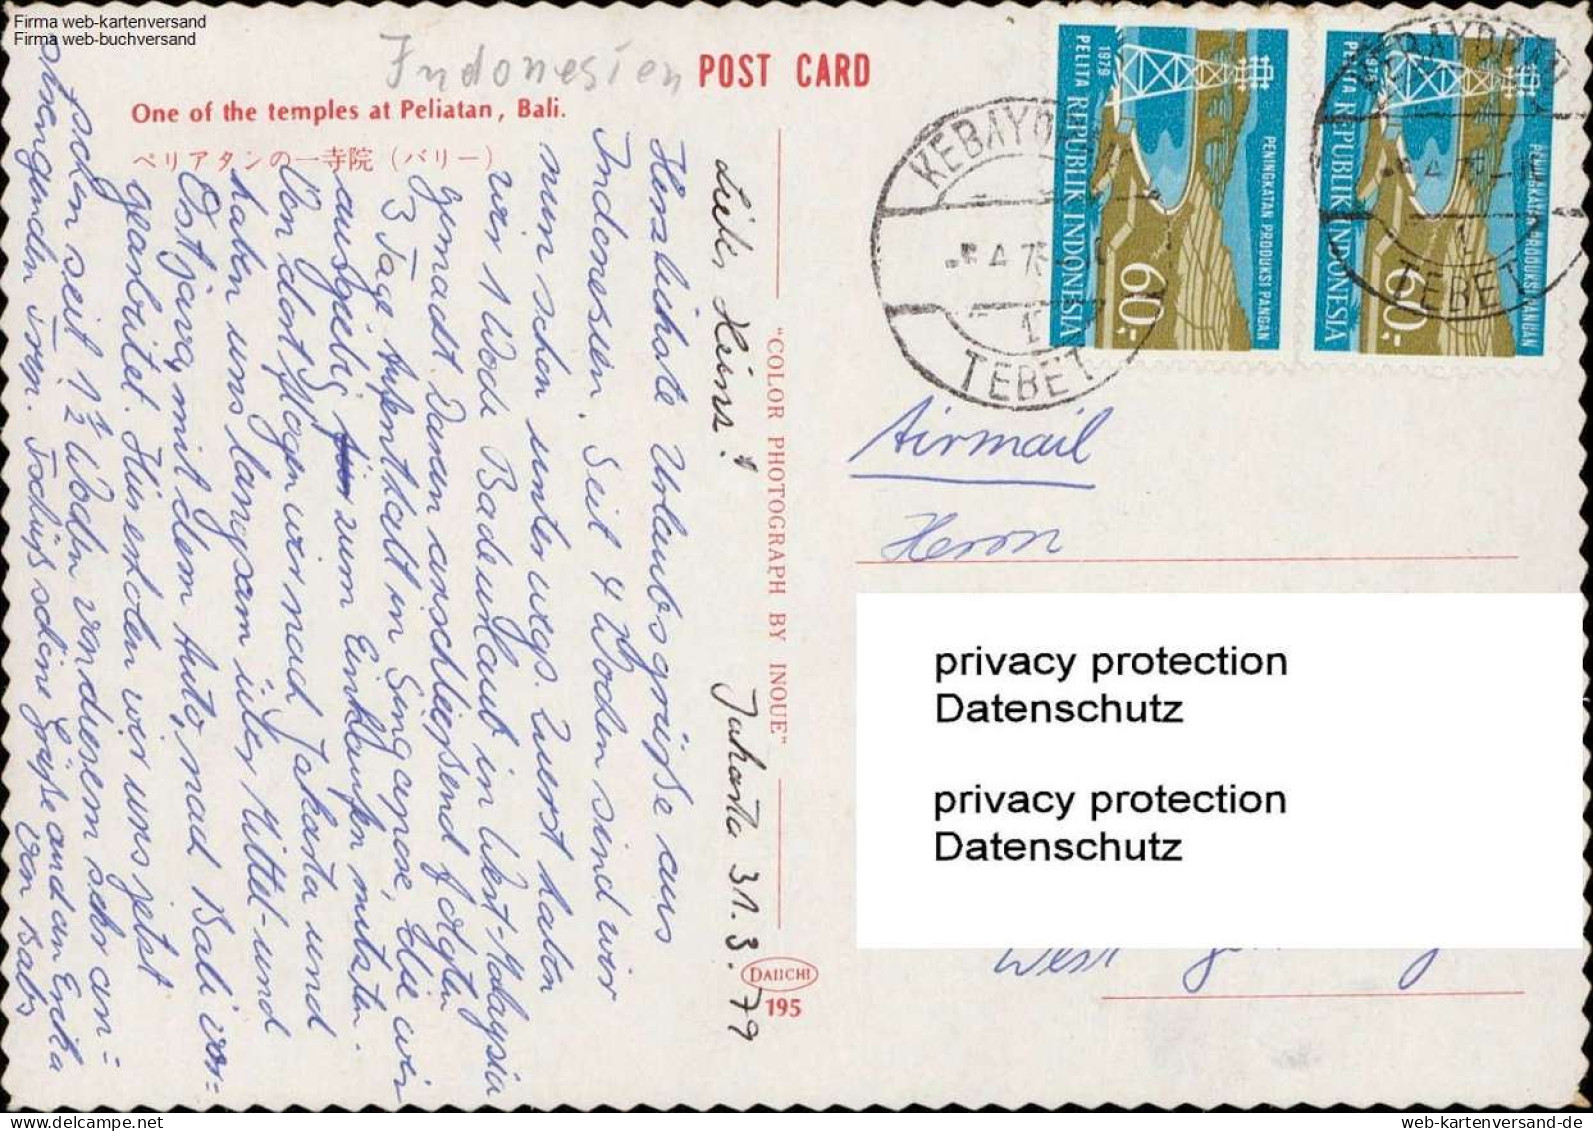 Firma web-kartenversand
Firma web-buchversand
Indonesien
POST CARD
One of the temples at Peliatan, Bali.
ペリアタンの一寺院 (バリー)
Jakarta 31.3.79
Liebe Heins!
Herzlichste Urlaubsgrüße aus
Indonesien. Seit 4 Wochen sind wir
nun schon unterwegs. Zuerst haben
wir 1 Woche Badeurlaub in West-Malaysia
gemacht. Daran anschließend folgten
3 Tage Aufenthalt in Singapore, die wir
ausgiebig zum Einkaufen nutzten.
Von dort flogen wir nach Jakarta und
haben uns langsam über Mittel- und
Ostjava, mit dem Auto, nach Bali vor-
gearbeitet. Hier erholen wir uns jetzt
schon seit 1½ Wochen von diesem sehr an-
strengenden Tren. Tschüß schöne Grüße an den Erika
von Babs
"COLOR PHOTOGRAPH BY INOUE"
DAIICHI
195
1979
PELITA REPUBLIK INDONESIA
PENINGKATAN PRODUKSI PANGAN
60.-
1979
PELITA REPUBLIK INDONESIA
PENINGKATAN PRODUKSI PANGAN
60.-
TEBET
TEBET
Airmail
Herrn
privacy protection
Datenschutz
privacy protection
Datenschutz
West
web-kartenversand-de